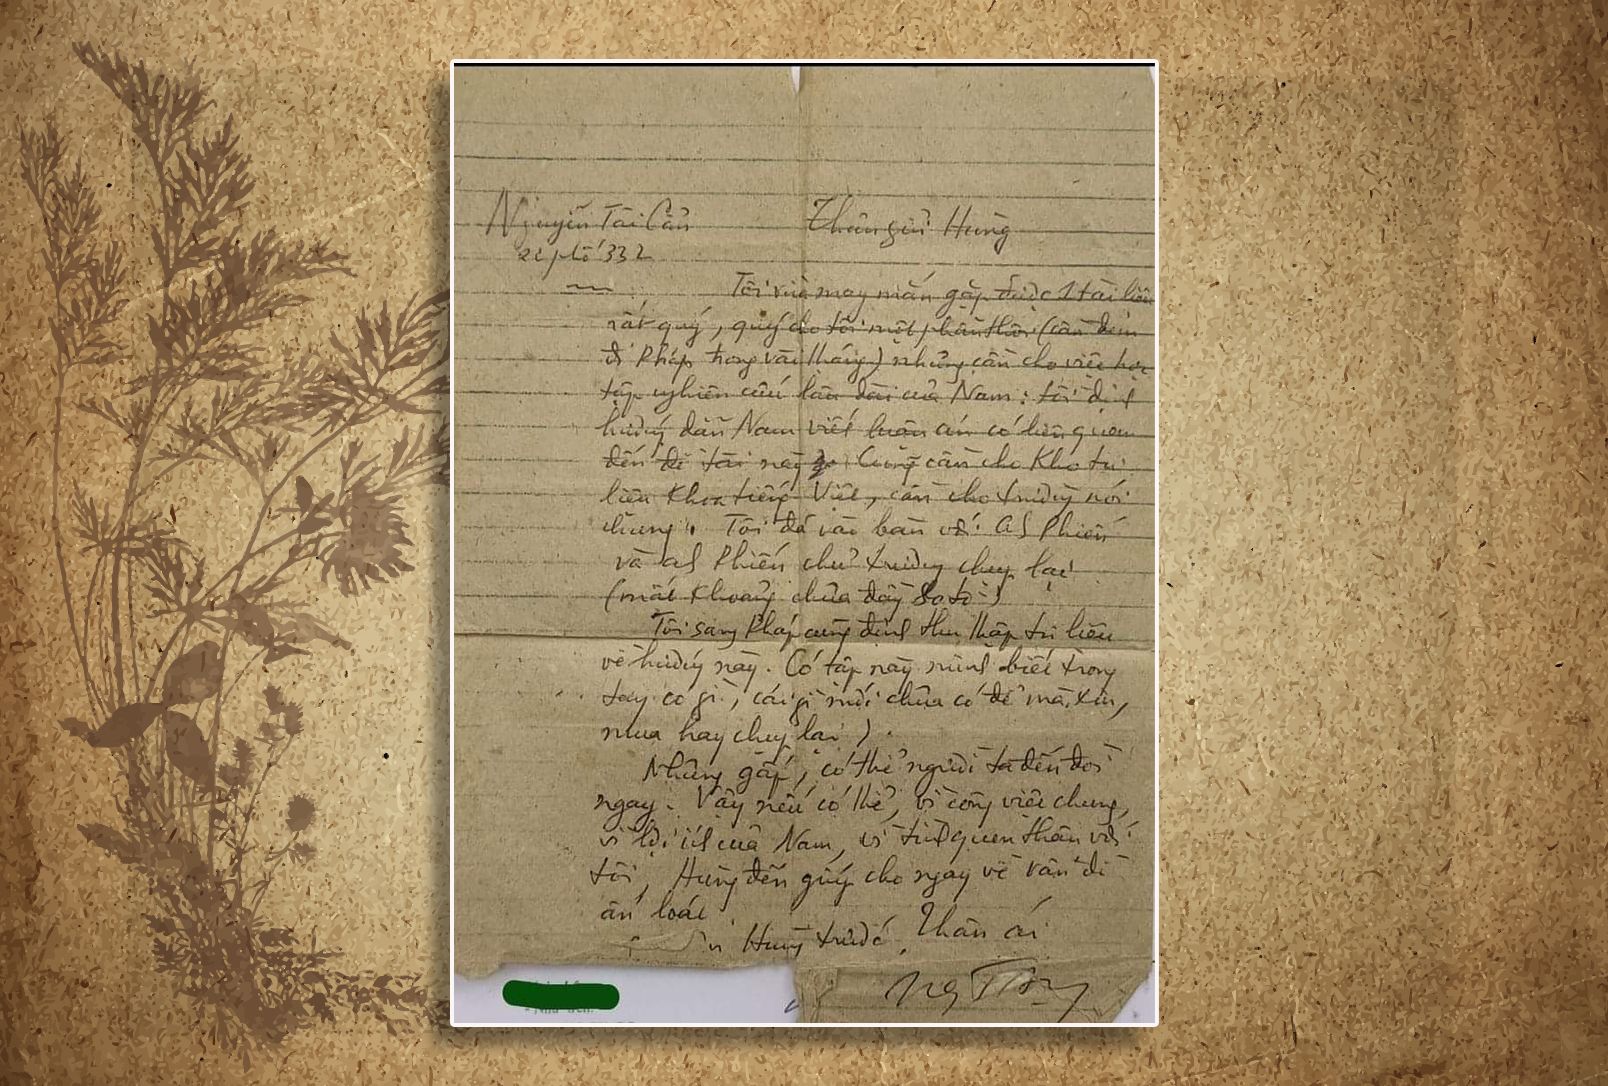 Nguyễn Tài Cẩn
Thân gửi Hùng
332
Tôi vừa may mắn gặp được 1 tài liệu
rất quý, quý cho tôi một phần thôi (cần đem
đi Pháp trong vài tháng) nhưng cần cho việc học
tập nghiên cứu lâu dài của Nam: tôi định
hướng dẫn Nam viết luận án có liên quan
đến đề tài này. Cũng cần cho Kho tư
liệu Khoa tiếng Việt, cần cho trường nói
chung. Tôi đã vào bàn với as Phiến
và as Phiến chủ trương chụp lại
(mất khoảng chưa đầy 80 tờ)
Tôi sang Pháp cũng định thu thập tư liệu
về hướng này. Có tập này mình biết trong
tay có gì, cái gì mới chưa có để mà xin,
mua hay chụp lại).
Nhưng gấp, có thể người ta đến đòi
ngay. Vậy nếu có thể, vì công việc chung,
vì lợi ích của Nam, vì tình quen thân với
tôi, Hùng đến giúp cho ngay về vấn đề
ấn loát.
Hùng trước. Thân ái